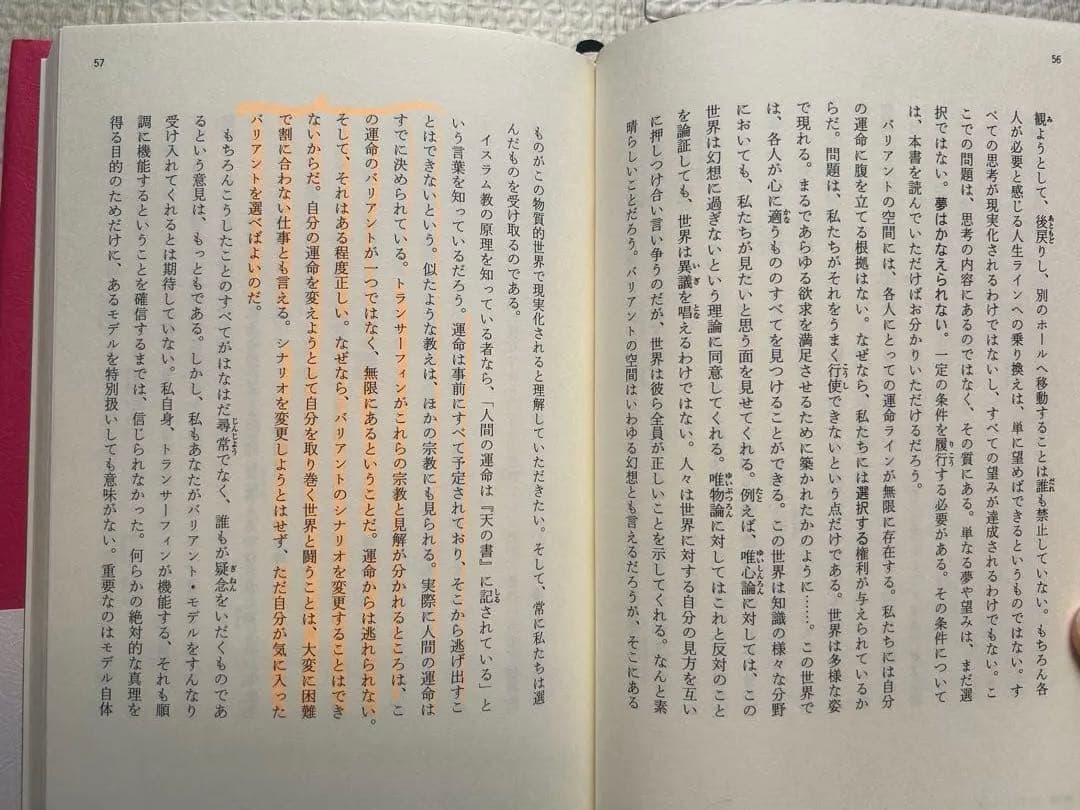 56
観ようとして、後戻りし、別のホールへ移動することは誰も禁止していない。もちろん各
人が必要と感じる人生ラインへの乗り換えは、単に望めばできるというものではない。す
べての思考が現実化されるわけではないし、すべての望みが達成されるわけでもない。こ
こでの問題は、思考の内容にあるのではなく、その質にある。単なる夢や望みは、まだ選
択ではない。夢はかなえられない。一定の条件を履行する必要がある。その条件について
は、本書を読んでいただけばお分かりいただけるだろう。
バリアントの空間には、各人にとっての運命ラインが無限に存在する。私たちには自分
の運命に腹を立てる根拠はない。なぜなら、私たちには選択する権利が与えられているか
らだ。問題は、私たちがそれをうまく行使できないという点だけである。世界は多様な姿
で現れる。まるであらゆる欲求を満足させるために築かれたかのように……。この世界で
は、各人が心に適うもののすべてを見つけることができる。この世界は知識の様々な分野
においても、私たちが見たいと思う面を見せてくれる。例えば、唯心論に対しては、この
世界は幻想に過ぎないという理論に同意してくれる。唯物論に対してはこれと反対のこと
を論証しても、世界は異議を唱えるわけではない。人々は世界に対する自分の見方を互い
に押しつけ合い言い争うのだが、世界は彼ら全員が正しいことを示してくれる。なんと素
晴らしいことだろう。バリアントの空間はいわゆる幻想とも言えるだろうが、そこにある
57
ものがこの物質的世界で現実化されると理解していただきたい。そして、常に私たちは選
んだものを受け取るのである。
イスラム教の原理を知っている者なら、「人間の運命は『天の書』に記されている」と
いう言葉を知っているだろう。運命は事前にすべて予定されており、そこから逃げ出すこ
とはできないという。似たような教えは、ほかの宗教にも見られる。実際に人間の運命は
すでに決められている。トランサーフィンがこれらの宗教と見解が分かれるところは、こ
の運命のバリアントが一つではなく、無限にあるということだ。運命からは逃れられない。
そして、それはある程度正しい。なぜなら、バリアントのシナリオを変更することはでき
ないからだ。自分の運命を変えようとして自分を取り巻く世界と闘うことは、大変に困難
で割に合わない仕事とも言える。シナリオを変更しようとはせず、ただ自分が気に入った
バリアントを選べばよいのだ。
もちろんこうしたことのすべてがはなはだ尋常でなく、誰もが疑念をいだくものであ
るという意見は、もっともである。しかし、私もあなたがバリアント・モデルをすんなり
受け入れてくれるとは期待していない。私自身、トランサーフィンが機能する、それも順
調に機能するということを確信するまでは、信じられなかった。何らかの絶対的な真理を
得る目的のためだけに、あるモデルを特別扱いしても意味がない。重要なのはモデル自体